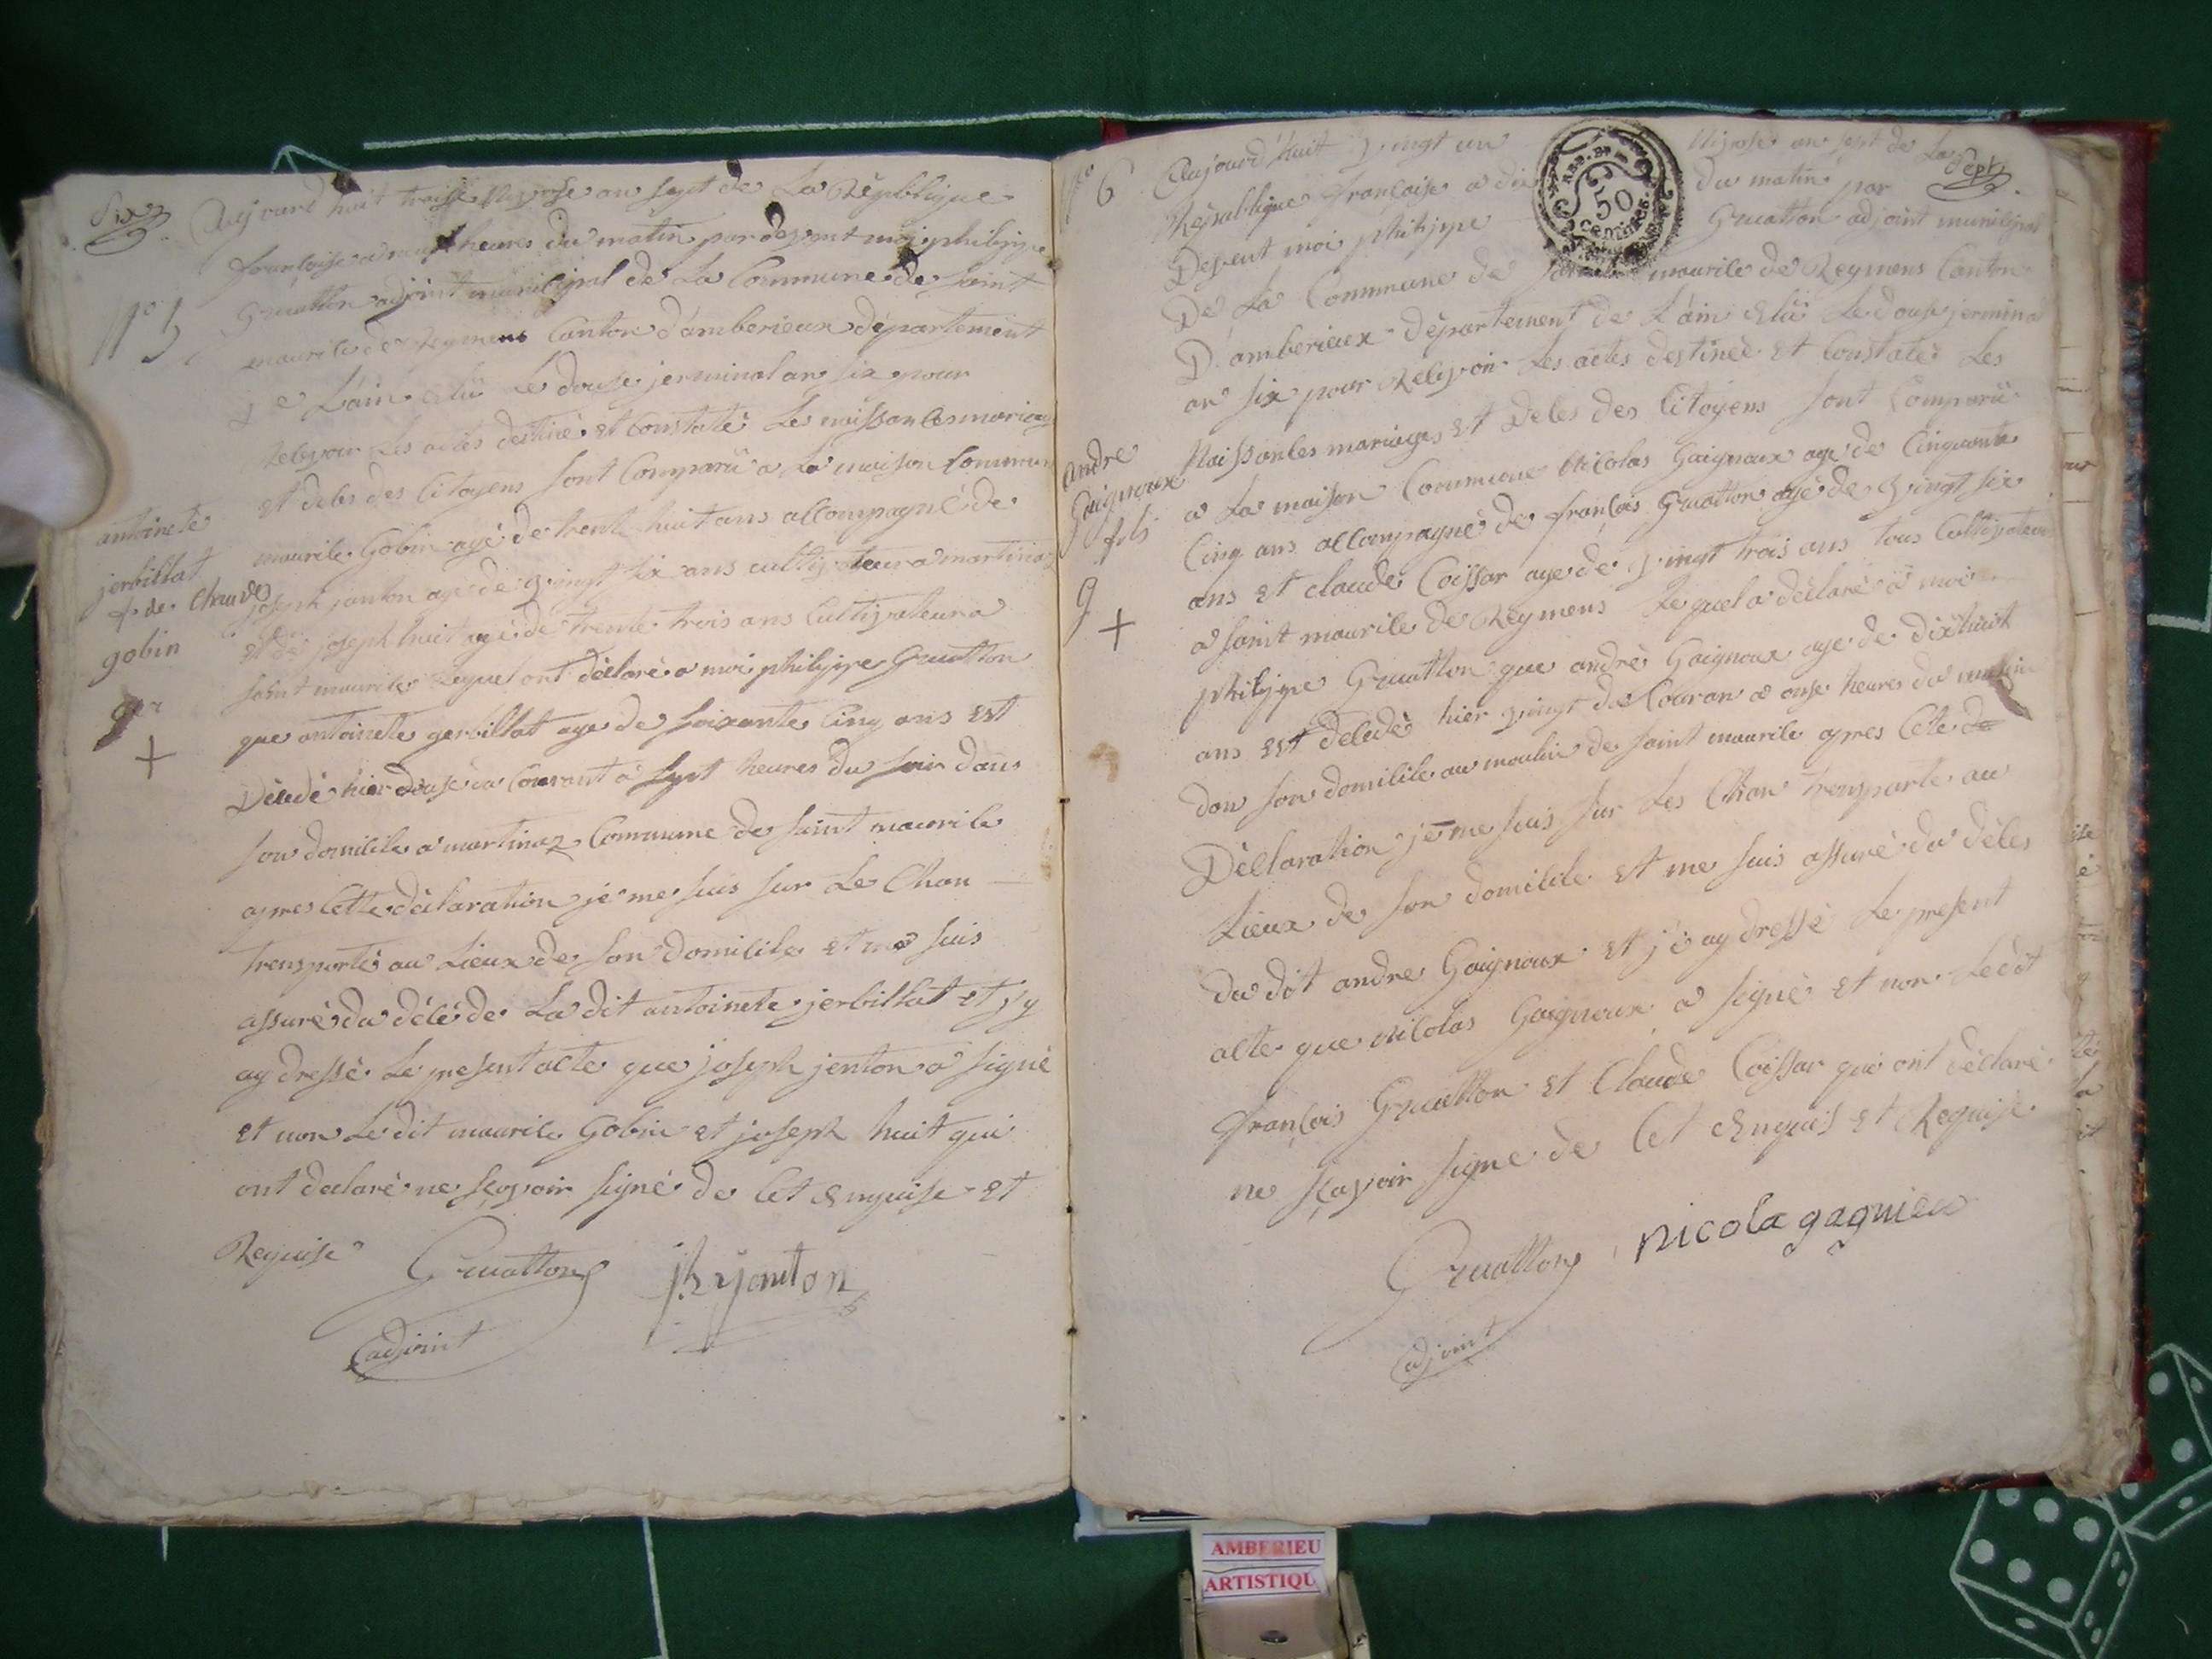 Six
Aujourd huit traise Nivose an sept de La Republique
françoise a neuf heures du matin par devent moi philippe
Gruatton adjoint municipal de La Commune de saint
N° 5
maurile de Reymens Canton d'amberieux département
De L'ain élü Le douse jerminal an six pour
Relevoir Les actes destiné et Constaté Les naissan Ces mariag
et deles des Citoyens sont Comparü a La maison Commune
antoinete
jerbillat
f de Claude
gobin
maurile Gobin agé de trente huit ans accompagné de
joseph janton agé de vingt six ans cultivateur a martinaz
et de joseph huit agé de trente trois ans Cultivateur a
saint maurile Lequel ont déclaré a moi philippe Gruatton
que antoinete gerbillat age de soixante Cinq ans est
Décédé hier douse du Courant a sept heures du soir dans
son domicile a martinaz Commune de saint maurile
apres Cette déclaration je me suis sur Le Chan
trensporté au Lieux de son domicile et me suis
assuré du décé de La dit antoinete jerbillat et j'y
ay dressé Le present acte que joseph jenton a signé
et non Le dit maurile Gobin et joseph huit qui
ont declaré ne sçavoir signé de Cet Enquise et
Requise
Gruatton
adjoint
jh janton
Sept
N° 6
Aujourd'huit vingt un Nivose an sept de La
Republique françoise a dix du matin par
Devent moi philippe Gruatton adjoint municipal
De La Commune de saint maurile de Reymens Canton
D'amberieux département de L'ain élü Le douse jerminal
an six pour Relevoir Les actes destineé et Constateé Les
Naissanles mariages et deles des Citoyens sont Comparü
andre
Gaignoux
fils
G
a La maison Commune Nicolas Gaignoux age de Cinquante
Cinq ans accompagné de françois Gruatton agé de vingt six
ans et claude Coissar age de vingt trois ans tous Cultivateur
a saint maurile de Reymens Lequel a déclaré a moi
philippe Gruatton que andré Gaignoux age de dix huit
ans est décédé hier vingt du Couran a onse heures du matin
dan son domicile au moulin de saint maurile apres Cete de
Déclaration je me suis sur Les Chan trensporte au
Lieux de son domicile et me suis assuré du déles
du dit andre Gaignoux et j'è ay dressé Le present
acte que Nicolas Gaignoux a signé et non Ledit
françois Gruatton et Claude Coissar qui ont déclaré
ne sçavoir signe de Cet Enquis et Requise
Gruatton
nicola gagnieu
adjoint
50
CENTIMES
AMBERIEU
ARTISTIQU